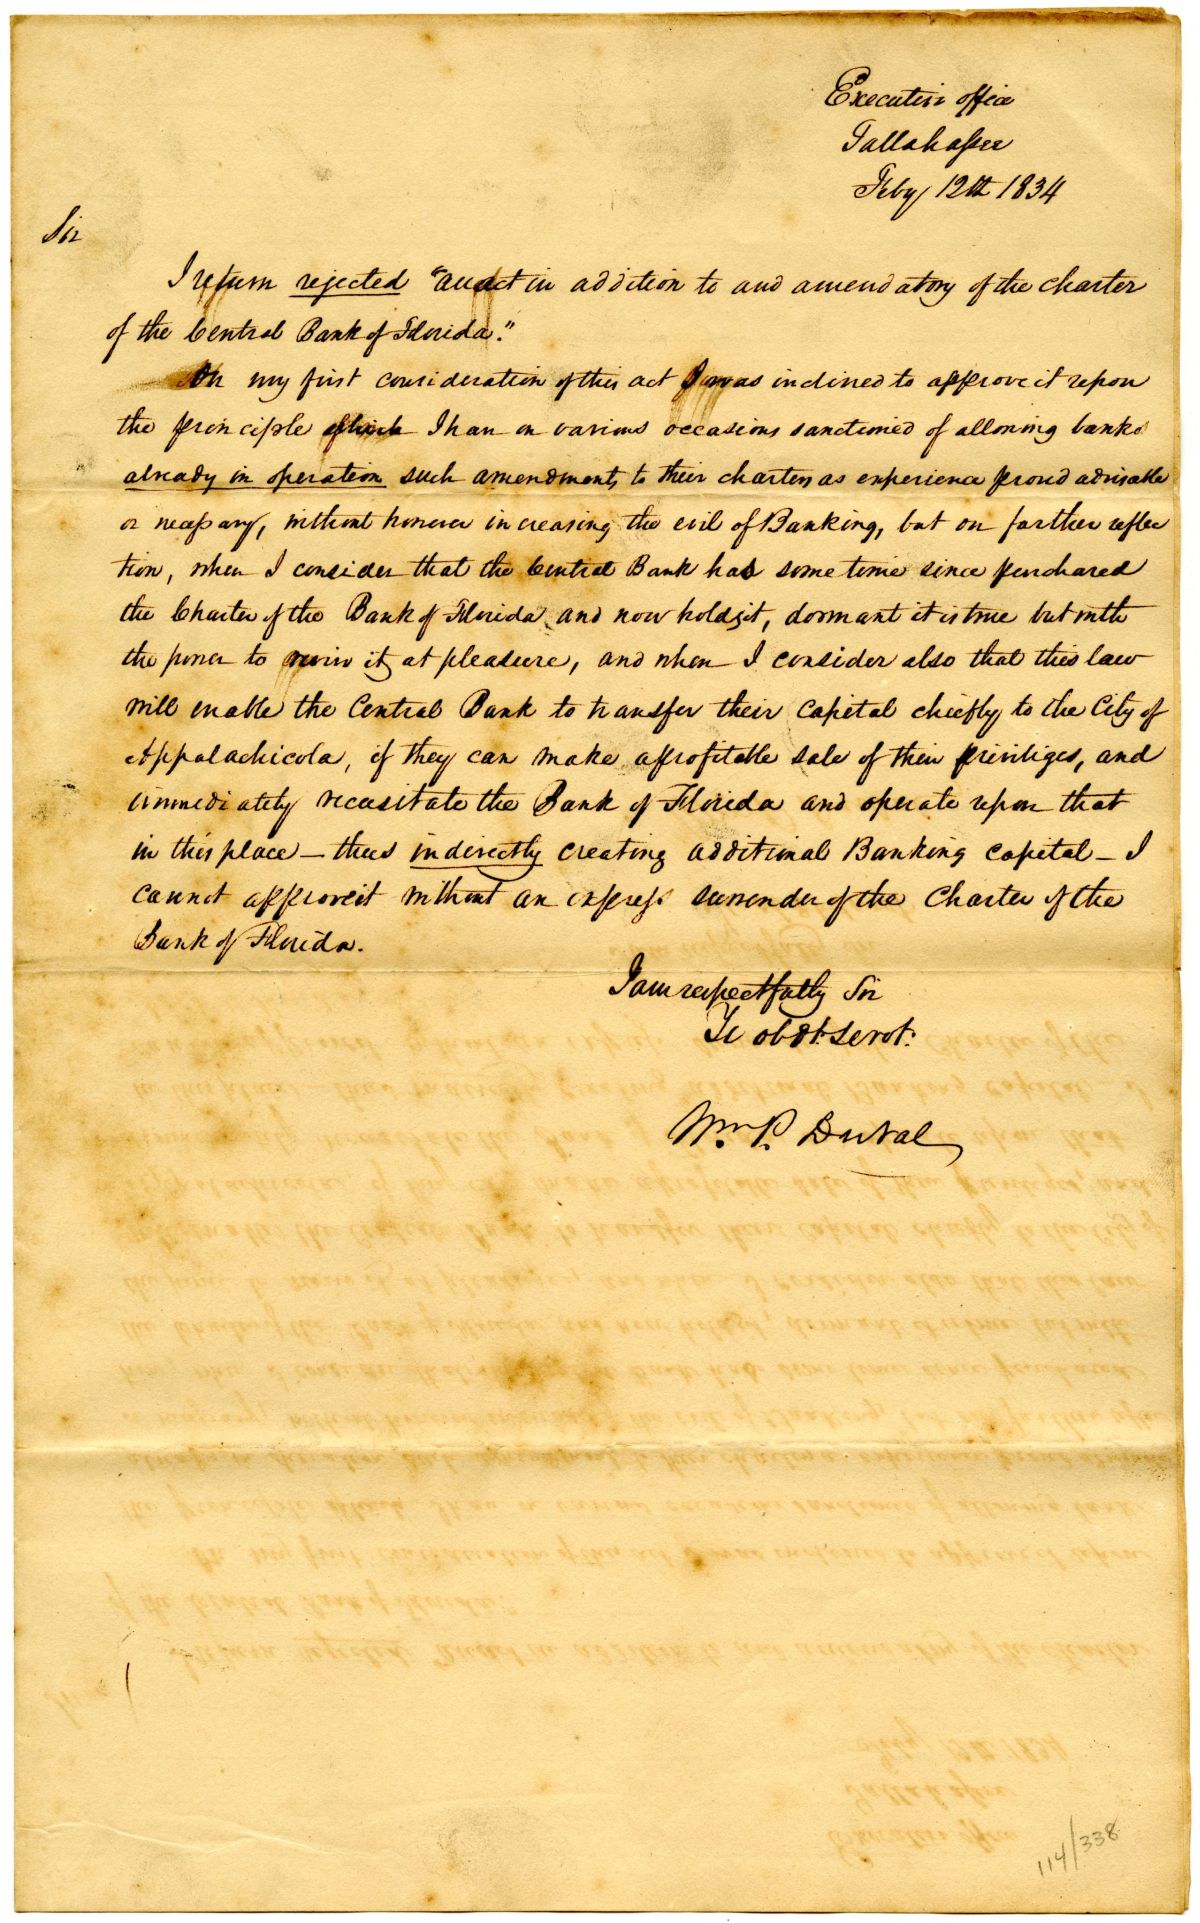 Executive office
Tallahassee
Feby 12th 1834
Sir
I return rejected "an act in addition to and amendatory of the charter
of the Central Bank of Florida."
On my first consideration of this act I was inclined to approve it upon
the principle which I have on various occasions sanctioned of allowing banks
already in operation such amendments to their charters as experience proved advisable
or necessary, without however increasing the evil of Banking, but on farther reflec
tion, when I consider that the Central Bank has some time since purchased
the Charter of the Bank of Florida and now holds it, dormant it is true but with
the power to revive it, at pleasure, and when I consider also that this law
will enable the Central Bank to transfer their capital chiefly to the City of
Appalachicola, if they can make a profitable sale of their priviliges, and
immediately recusitate the Bank of Florida and operate upon that
in this place – thus indirectly creating additional Banking capital – I
cannot approve it without an express surrender of the Charter of the
Bank of Florida.
I am respectfully Sir
Yr obdt. Servt.
Wm. P. DuVal
114/338